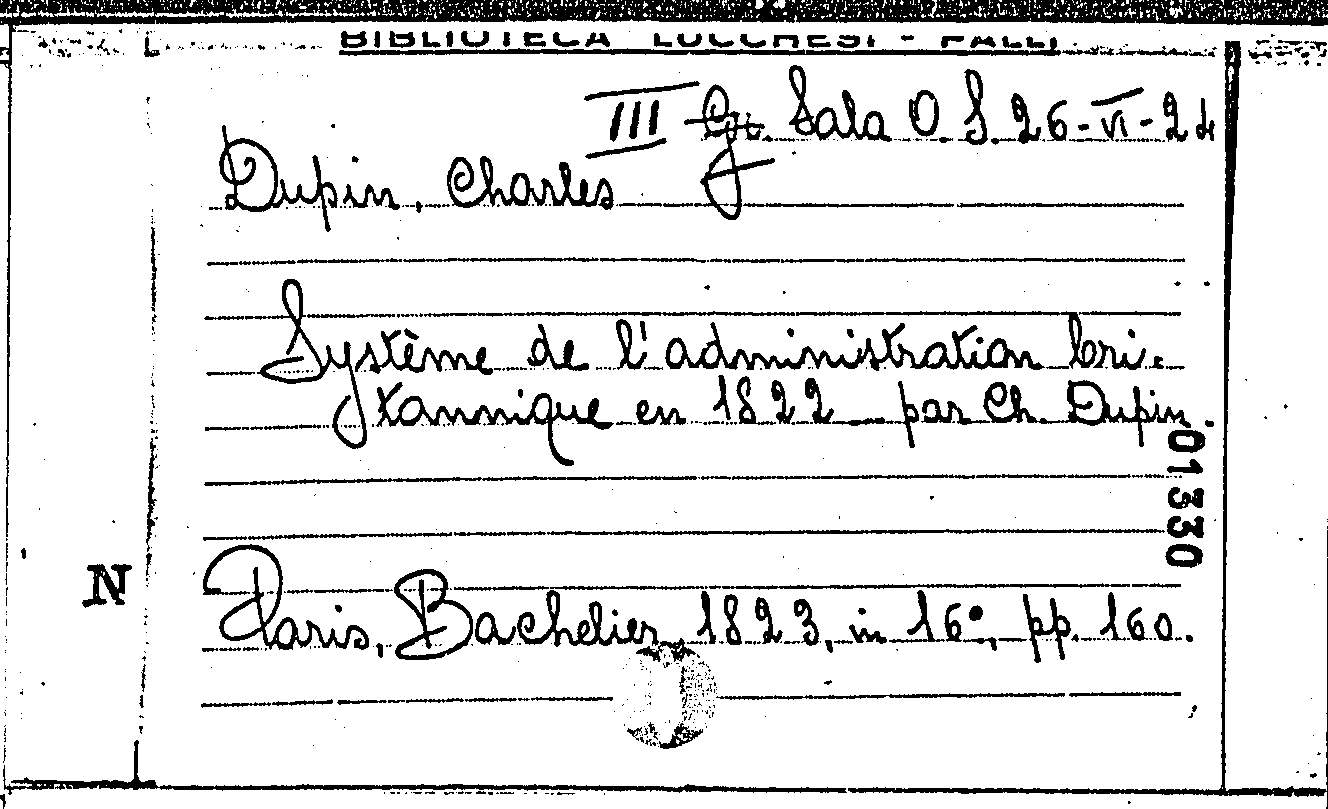 BIBLIOTECA LUCCHESI - PALLI
III Gr. Sala O. S. 26-VI-24
Dupin, Charles
Système de l'administration bri-
tannique en 1822 par Ch. Dupin.
01330
N
Paris, Bachelier, 1823, in 16°, pp. 160.